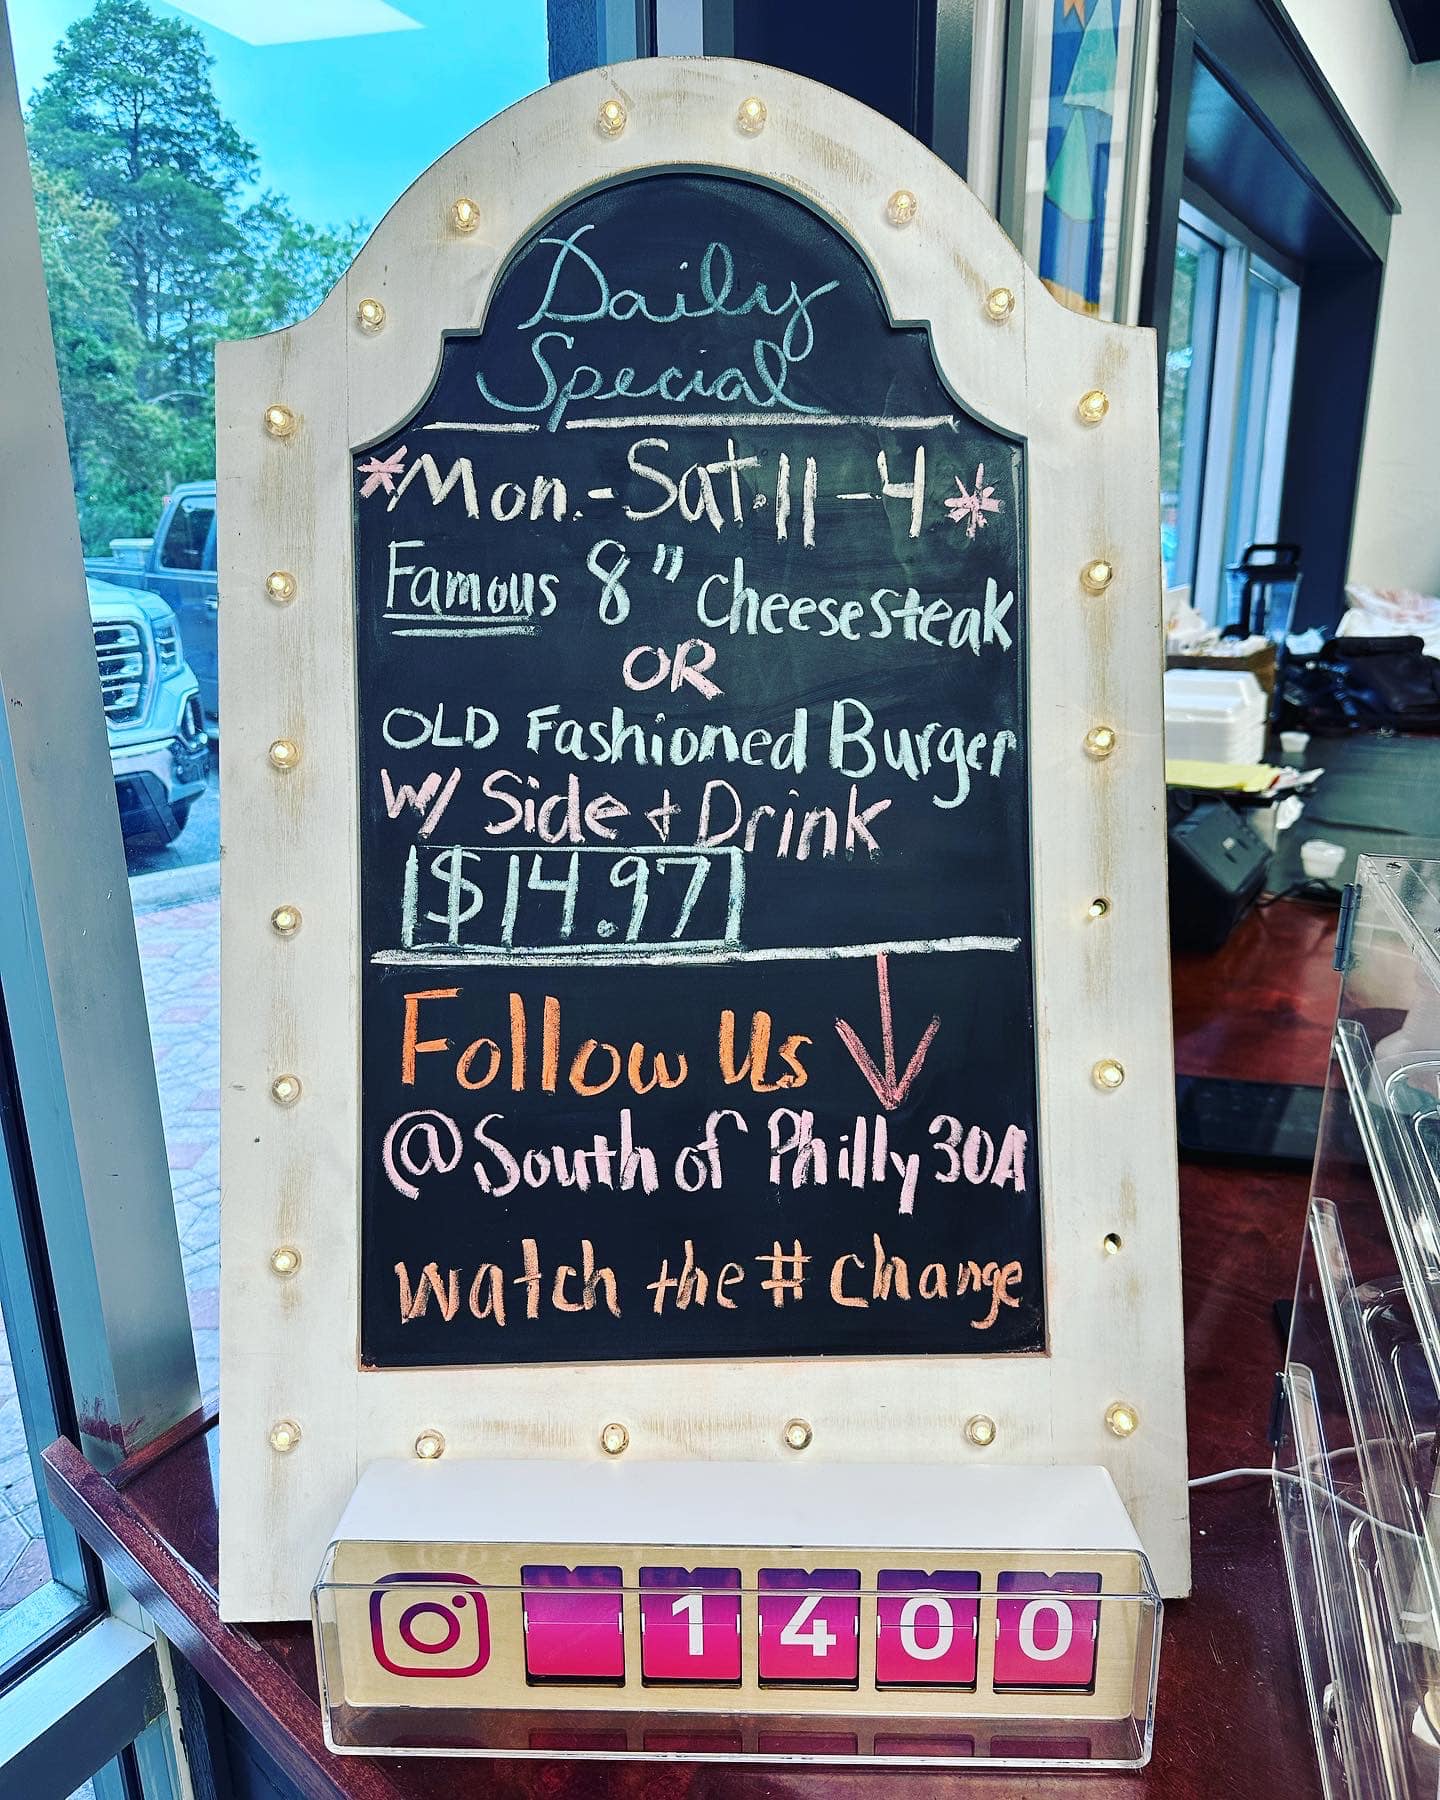 Daily
Special
*Mon.-Sat. 11-4*
Famous 8" cheesesteak
OR
OLD Fashioned Burger
w/ Side + Drink
$14.97
Follow Us
@South of Philly 30A
watch the # change
1400